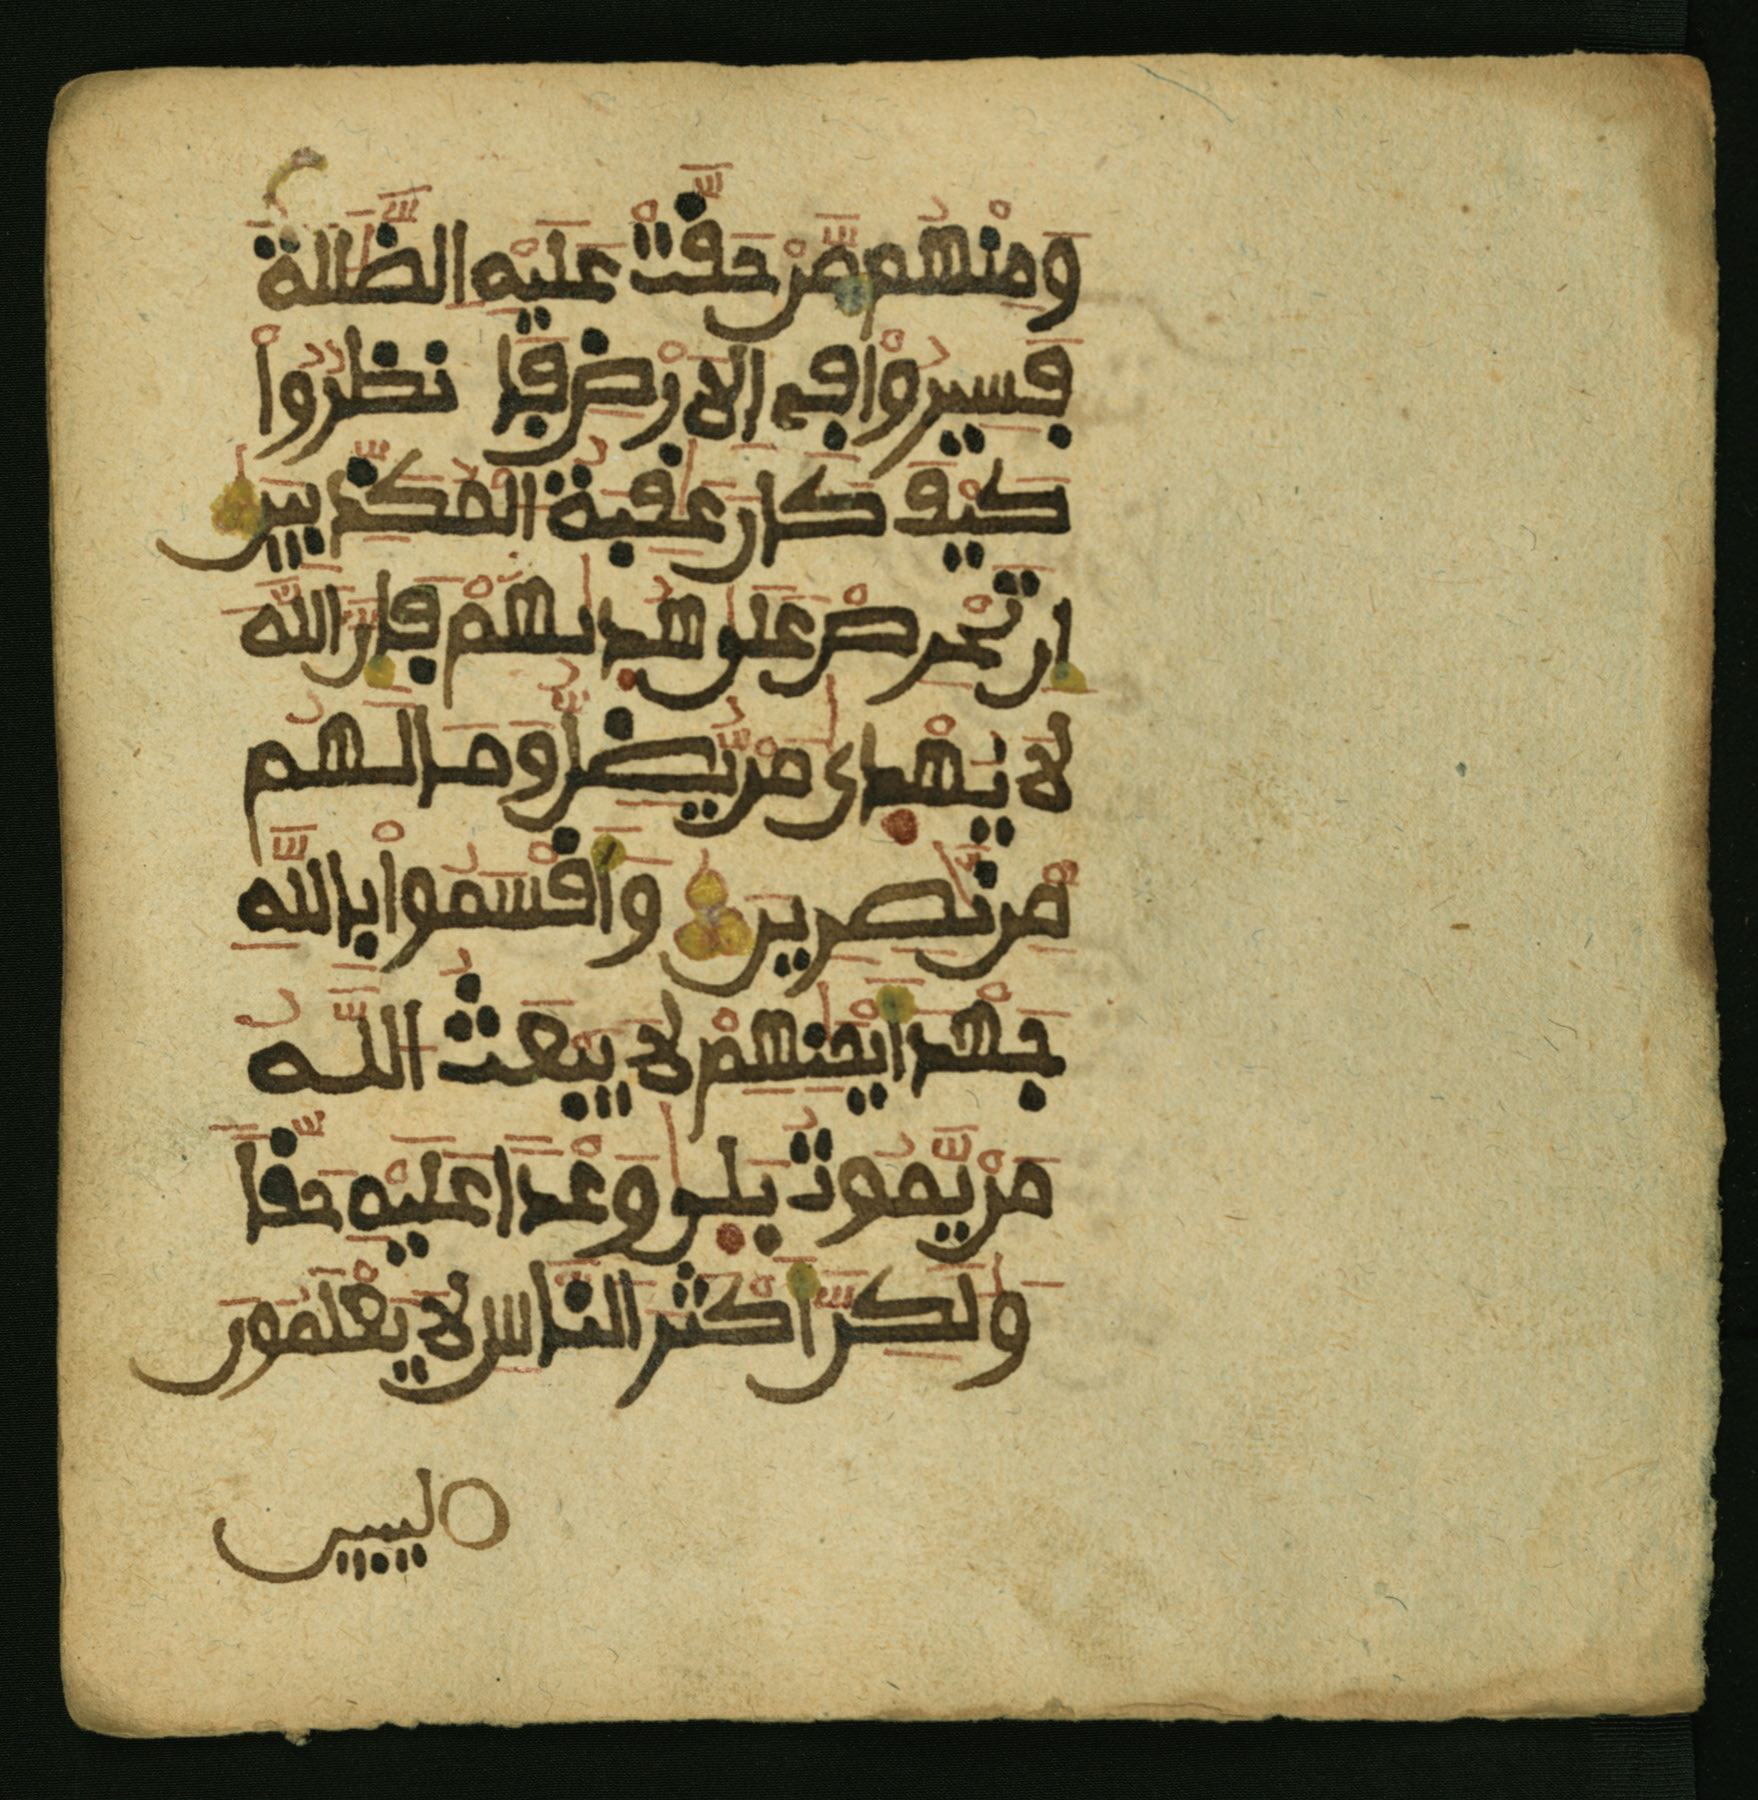 وَمِنْهُم مَّنْ حَقَّتْ عَلَيْهِ الضَّلَلَةُ
فَسِيرُوا۟ فِي الَارْضِ فَا نظُرُوا۟
كَيْفَ كَانَ عَٰقِبَةُ الْمُكَذِّبِينَ
إِن تَحْرِصْ عَلَىٰ هُدَىٰهُمْ فَإِنَّ اللَّهَ
لَا يُهْدَىٰ مَنْ يُّضِلُّ وَمَا لَهُم
مِّن نَّٰصِرِينَ وَأَقْسَمُوا۟ بِاللَّهِ
جَهْدَ أَيْمَٰنِهِمْ لَا يَبْعَثُ اللَّهُ
مَنْ يَّمُوتُ بَلَىٰ وَعْدًا عَلَيْهِ حَقًّا
وَلَٰكِنَّ أَكْثَرَ النَّاسِ لَا يَعْلَمُونَ
ليبين